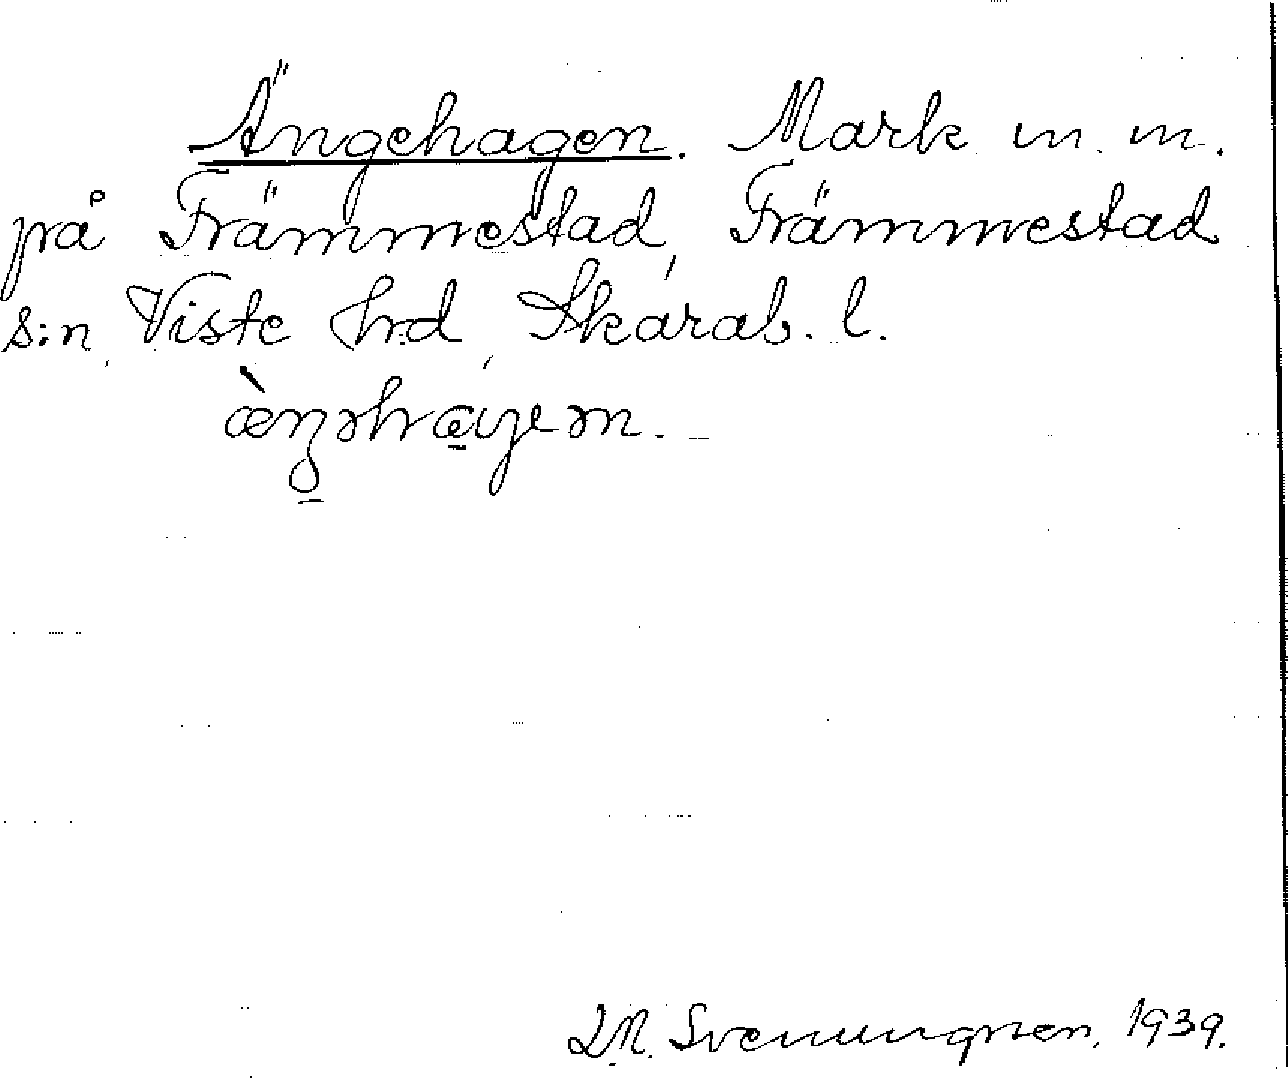 Ängehagen. Mark m. m.
på Främmestad, Främmestad
s:n, Viste hrd, Skarab. l.
Svenungsson, 1939.